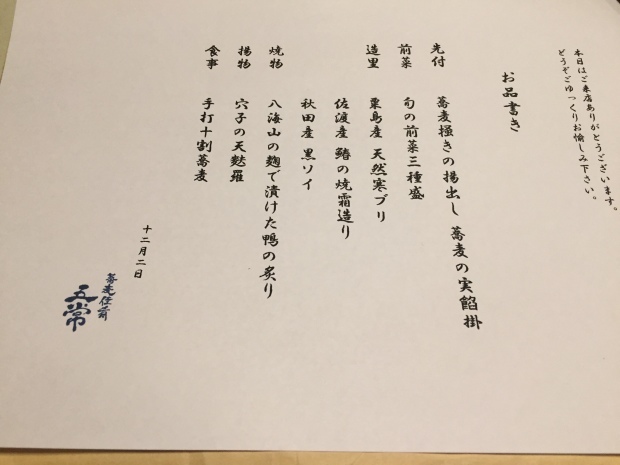 本日はご来店ありがとうございます。
どうぞごゆっくりお愉しみ下さい。
お品書き
先付 蕎麦掻きの揚出し 蕎麦の実餡掛
前菜 旬の前菜三種盛
造里 粟島産 天然寒ブリ
佐渡産 鰆の焼霜造り
秋田産 黒ソイ
焼物 八海山の麹で漬けた鴨の炙り
揚物 穴子の天麩羅
食事 手打十割蕎麦
十二月二日
蕎麦仕前
五常